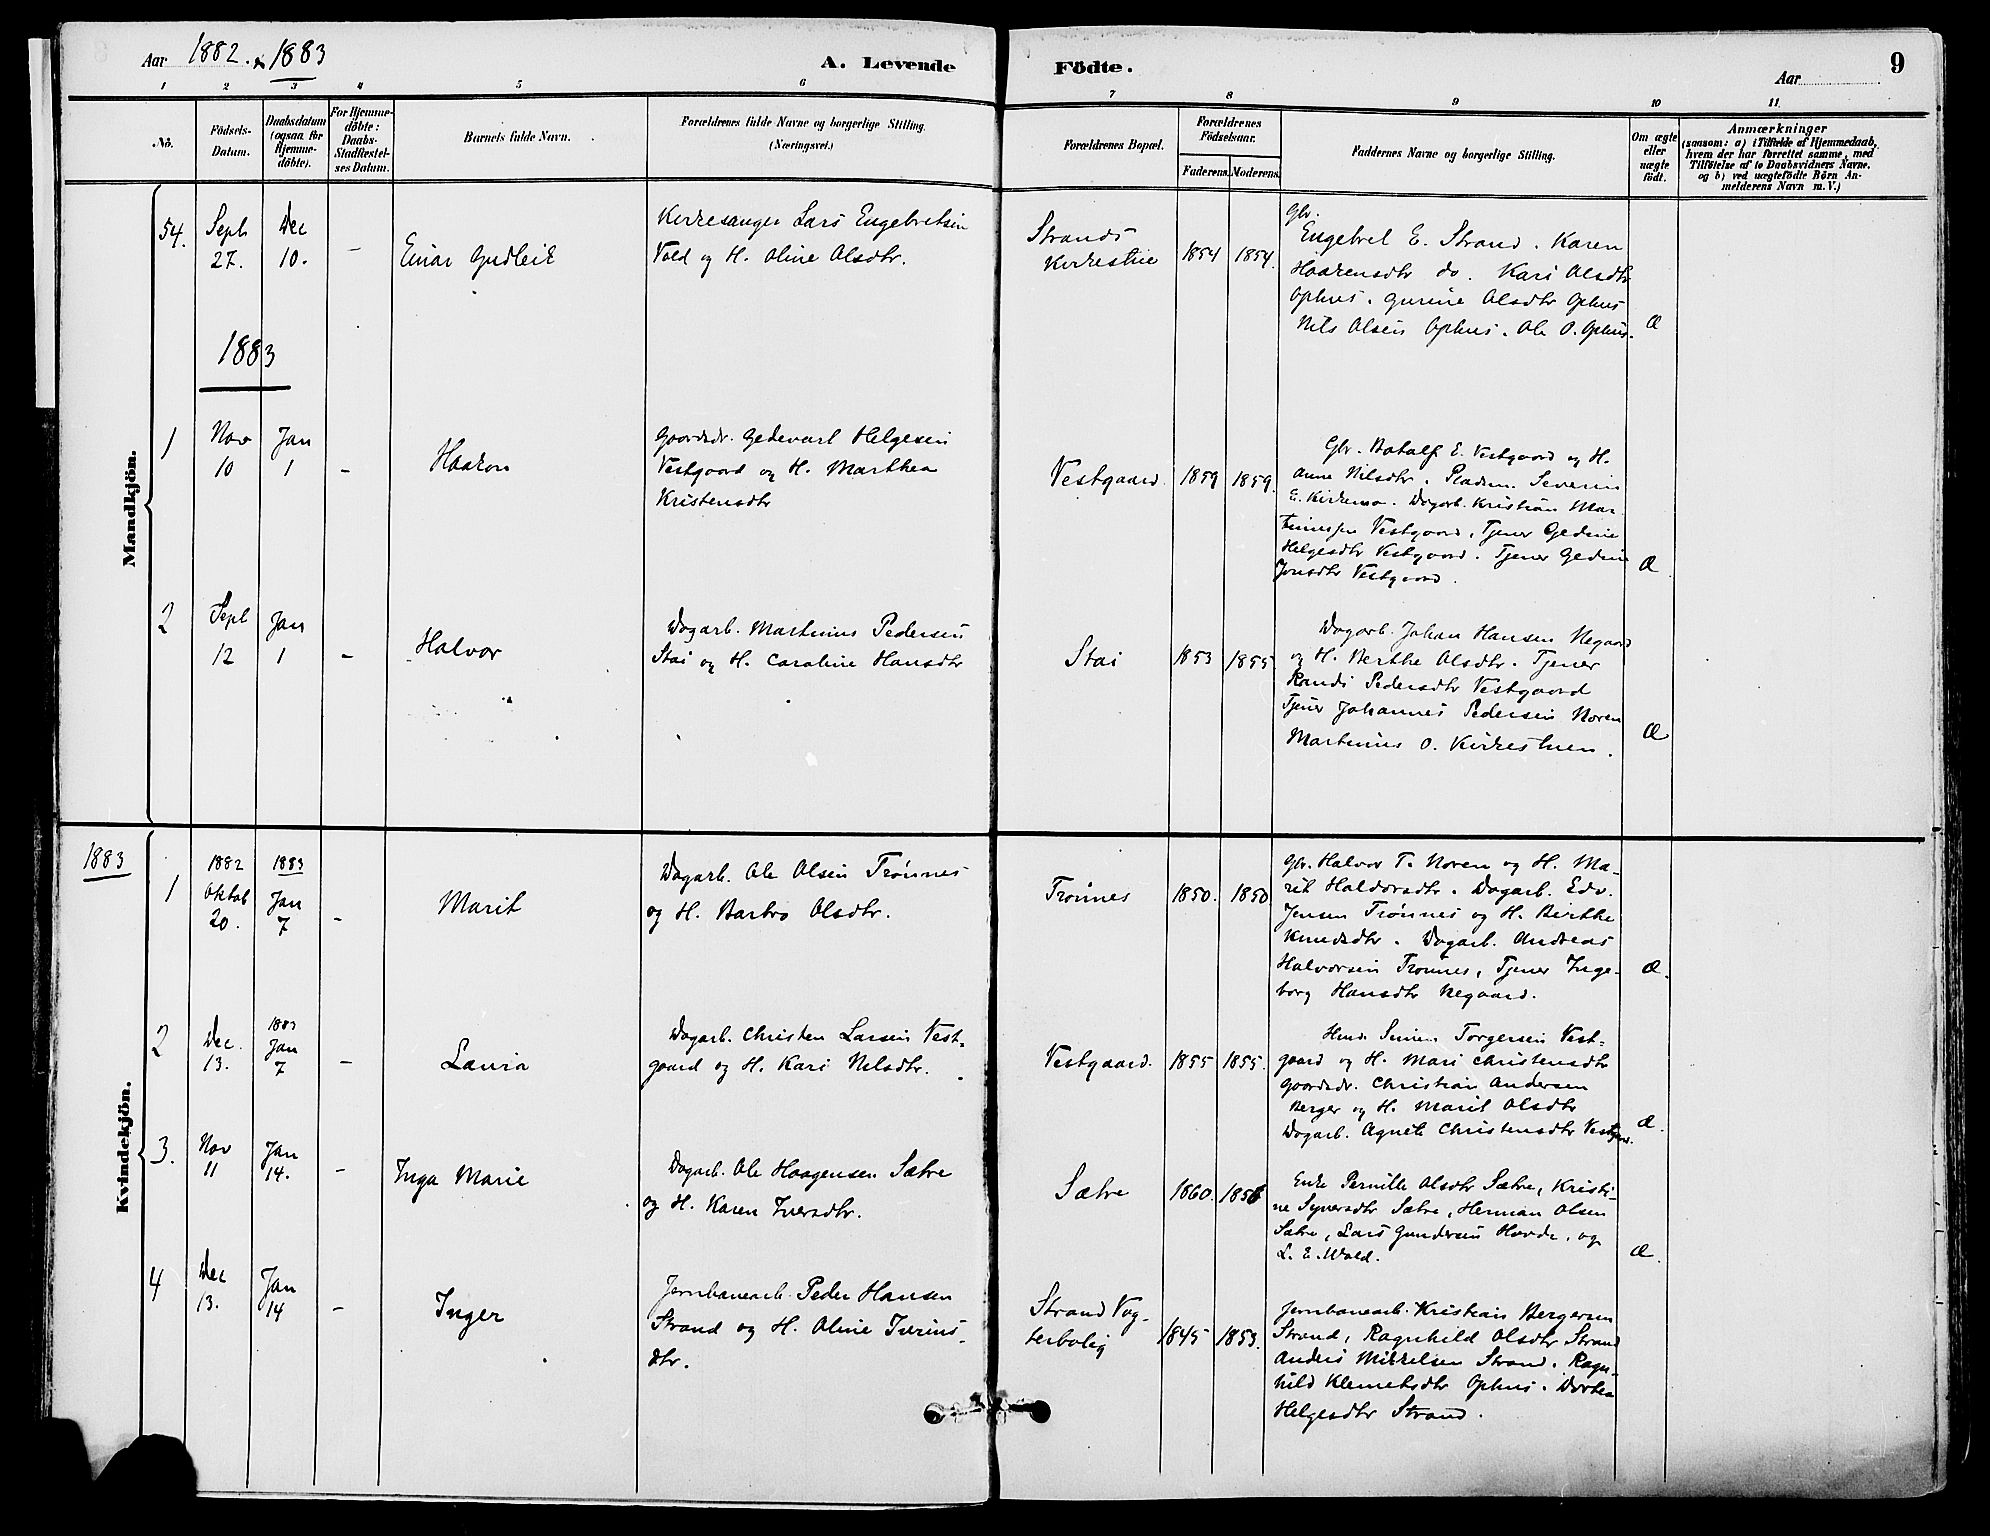 Aar 1882. & 1883
A. Levende
Födte.
Aar
9
1
2
3
4
5
6
7
8
9
10
11
No.
Födsels-
Datum.
Daabsdatum
(ogsaa for
Hjemme-
döbte).
For Hjemme-
döbte:
Daabs-
Stadfæstel-
ses Datum.
Barnets fulde Navn.
Forældrenes fulde Navne og borgerlige Stilling.
(Næringsvei.)
Forældrenes Bopæl.
Forældrenes
Födselsaar.
Faderens.
Moderens.
Faddernes Navne og borgerlige Stilling.
Om ægte
eller
uægte
født.
Anmærkninger
(saasom: a) i Tilfælde af Hjemmedaab,
hvem der har forrettet samme, med
Tilföielse af to Daabsvidners Navne,
og b) ved uægtefödte Börn An-
melderens Navn m. V.)
Mandkjön.
54.
Sept
27.
Dec
10.
-
Einar Gudleik
Kirkesanger Lars Engebretsen
Vold og H. Oline Olsdtr.
Strands
Kirkestue
1854
1854.
Gbr.
Engebret E. Strand. Karen
Haakensdtr do. Kari Olsdtr
Ophus. Gurine Olsdtr Ophus
Nils Olsen Ophus. Ole O. Ophus.
Æ
1883
1
Nov
10
Jan
1
-
Haakon
Gaardbr. Gedevart Helgesen
Vestgaard og H. Marthea
Kristensdtr
Vestgaard.
1859
1859.
Gbr. Botolf E. Vestgaard og H.
Anne Nilsdtr. Pladsm. Severin
E. Kirkemo. Dagarb. Kristian Mar-
tinussen Vestgaard, Tjener Gedine
Helgesdtr Vestgaard. Tjener Gedine
Jonsdtr Vestgaard.
Æ
2
Sept
12
Jan
1
-
Halvor
Dagarb. Martinus Pedersen
Stai og H. Caroline Hansdtr
Stai
1853
1855
Dagarb. Johan Hansen Negaard
og H. Berthe Olsdtr. Tjener
Randi Pedersdtr Vestgaard
Tjener Johannes Pedersen Noren
Martinus O. Kirkestuen.
Æ
Kvindekjön.
1883
1
1882
Oktob
20.
1883
Jan
7
-
Marit
Dagarb. Ole Olsen Trønnes
og H. Barbro Olsdtr.
Trønnes
1850.
1850
Gbr. Halvor T. Noren og H. Ma-
rit Haldorsdtr. Dagarb. Edv.
Jensen Trønnes og H. Berthe
Knudsdtr. Dagarb. Andreas
Halvorsen Trønnes, Tjener Inge-
borg Hansdtr Negaard.
Æ.
2
Dec.
13.
1883
Jan
7
-
Laura
Dagarb. Christen Larsen Vest-
gaard og H. Kari Nilsdtr.
Vestgaard.
1855
1855.
Simen Torgersen Vest-
gaard og H. Mari Christensdtr
Gaardbr. Christian Andersen
Berger og H. Marit Olsdtr
Dagarb. Agnete Christensdtr Vestgaard.
Æ.
3.
Nov
11
Jan
14.
-
Inga Marie
Dagarb. Ole Haagensen Sætre
og H. Karen Iversdtr.
Sætre
1860.
Enke Pernille Olsdtr Sætre, Kristi-
ne Syversdtr Sætre, Herman Olsen
Sætre, Lars Gundersen Hovde, og
L. E. Wold.
Æ.
4
Dec
13.
Jan
14
-
Inger
Jernbanearb. Peder Hansen
Strand og H. Oline Iverins-
dtr.
Strand Vog-
terbolig
1845
1853.
Jernbanearb. Kristian Bergersen
Strand, Ragnhild Olsdtr Strand
Anders Mikkelsen Strand. Ragn-
hild Klemetsdtr Ophus. Dortea
Helgesdtr Strand.